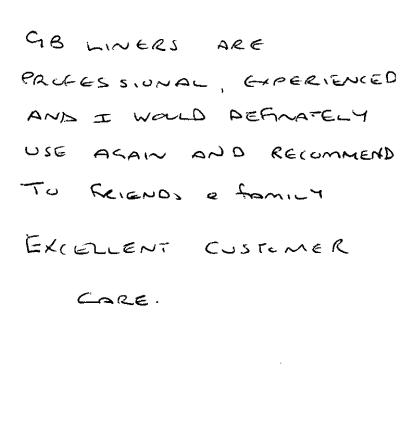 GB LINERS ARE
PROFESSIONAL, EXPERIENCED
AND I WOULD DEFINATELY
USE AGAIN AND RECOMMEND
TO FRIENDS & FAMILY
EXCELLENT CUSTOMER
CARE.